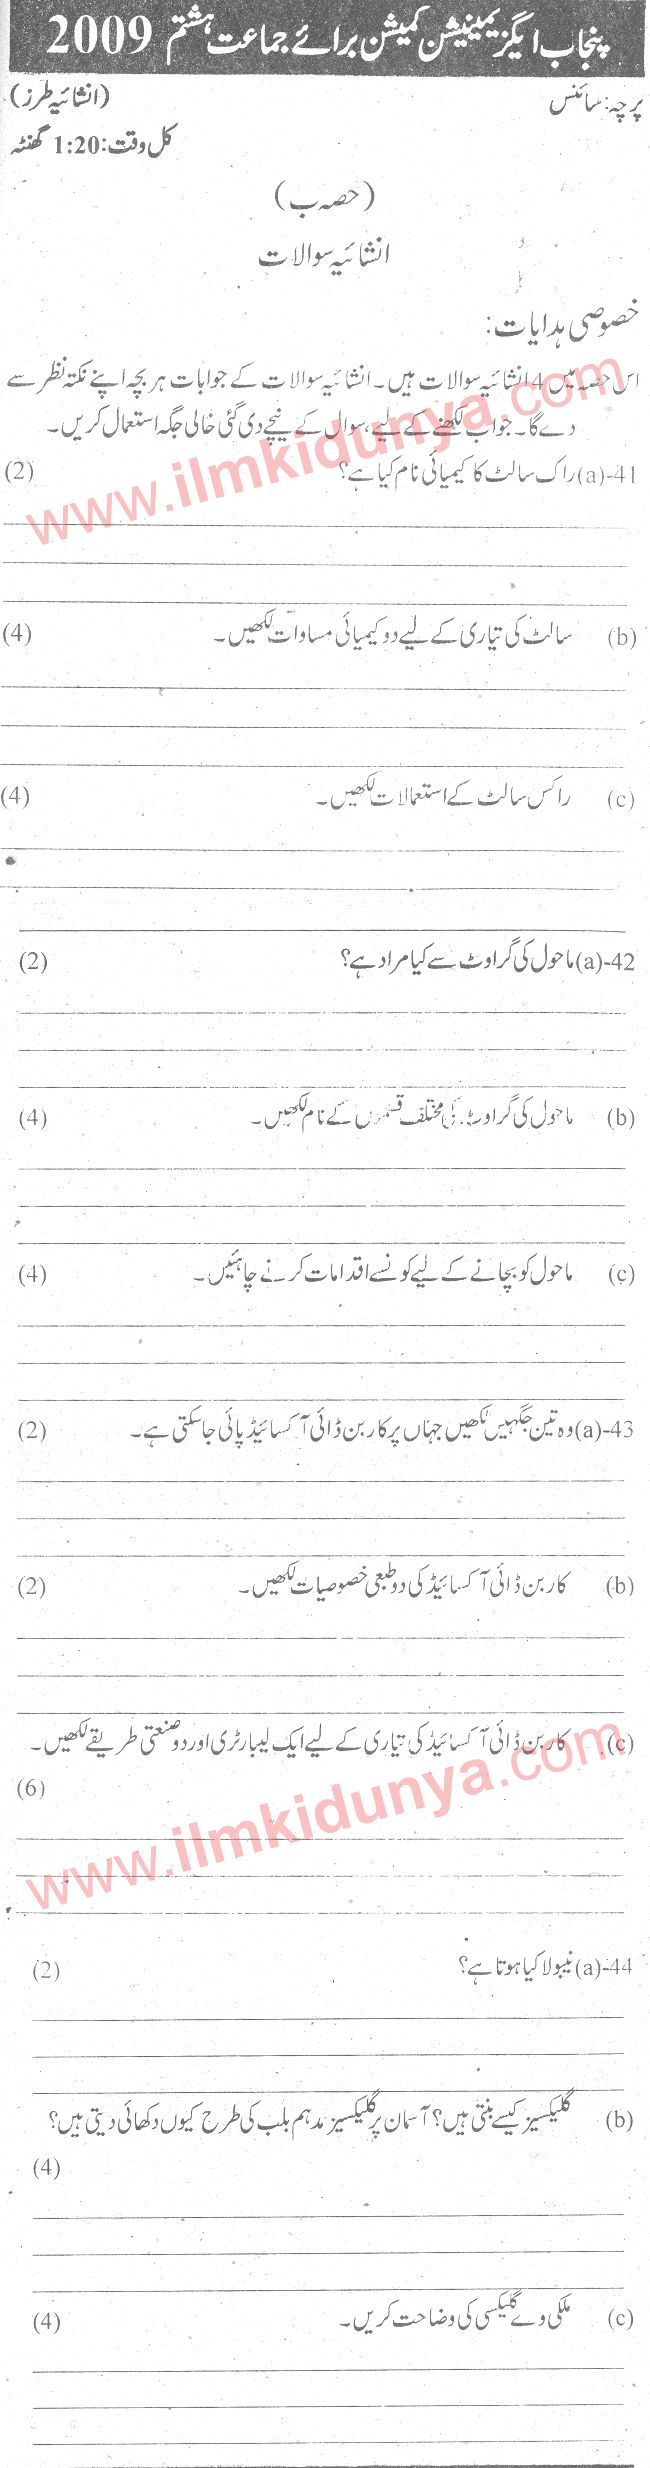 پنجاب ایگزیمینیشن کمیشن برائے جماعت ہشتم 2009
پرچہ: سائنس (انشائیہ طرز)
کل وقت: 1:20 گھنٹہ
(حصہ ب)
انشائیہ سوالات
خصوصی ہدایات:
اس حصہ میں 4 انشائیہ سوالات ہیں۔ انشائیہ سوالات کے جوابات ہر بچہ اپنے نکتہ نظر سے
دے گا۔ جواب لکھنے کے لیے، سوال کے نیچے دی گئی خالی جگہ استعمال کریں۔
www.ilmkidunya.com
41-(a) راک سالٹ کا کیمیائی نام کیا ہے؟ (2)
(b) سالٹ کی تیاری کے لیے دو کیمیائی مساوات لکھیں۔ (4)
(c) راکس سالٹ کے استعمالات لکھیں۔ (4)
42-(a) ماحول کی گراوٹ سے کیا مراد ہے؟ (2)
(b) ماحول کی گراوٹ کی مختلف قسموں کے نام لکھیں۔ (4)
(c) ماحول کو بچانے کے لیے کونسے اقدامات کرنے چاہئیں۔ (4)
43-(a) وہ تین جگہیں لکھیں جہاں پر کاربن ڈائی آکسائیڈ پائی جاسکتی ہے۔ (2)
(b) کاربن ڈائی آکسائیڈ کی دو طبعی خصوصیات لکھیں۔ (2)
(c) کاربن ڈائی آکسائیڈ کی تیاری کے لیے ایک لیبارٹری اور دو صنعتی طریقے لکھیں۔
(6)
www.ilmkidunya.com
44-(a) نیبولا کیا ہوتا ہے؟ (2)
(b) گلیکسیز کیسے بنتی ہیں؟ آسمان پر گلیکسیز مدہم بلب کی طرح کیوں دکھائی دیتی ہیں؟
(4)
(c) ملکی وے گلیکسی کی وضاحت کریں۔ (4)